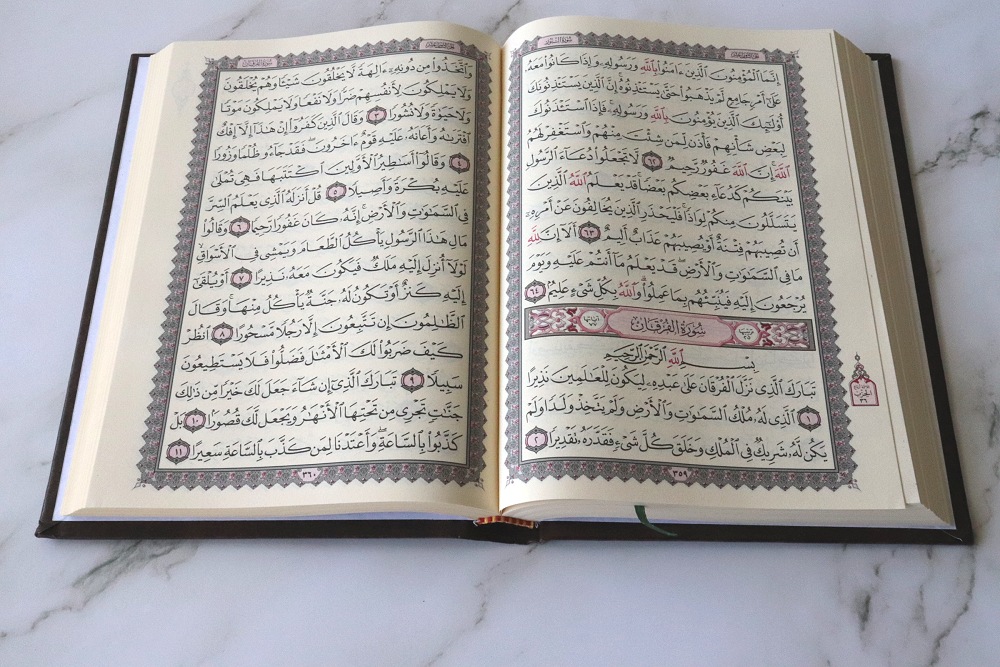 سورة النور
إِنَّمَا ٱلْمُؤْمِنُونَ ٱلَّذِينَ ءَامَنُوا۟ بِٱللَّهِ وَرَسُولِهِۦ وَإِذَا كَانُوا۟ مَعَهُۥ
عَلَىٰٓ أَمْرٍ جَامِعٍ لَّمْ يَذْهَبُوا۟ حَتَّىٰ يَسْتَـْٔذِنُوهُ إِنَّ ٱلَّذِينَ يَسْتَـْٔذِنُونَكَ
أُو۟لَٰٓئِكَ ٱلَّذِينَ يُؤْمِنُونَ بِٱللَّهِ وَرَسُولِهِۦ فَإِذَا ٱسْتَـْٔذَنُوكَ
لِبَعْضِ شَأْنِهِمْ فَأْذَن لِّمَن شِئْتَ مِنْهُمْ وَٱسْتَغْفِرْ لَهُمُ
ٱللَّهَ إِنَّ ٱللَّهَ غَفُورٌ رَّحِيمٌ ٦٢ لَّا تَجْعَلُوا۟ دُعَآءَ ٱلرَّسُولِ
بَيْنَكُمْ كَدُعَآءِ بَعْضِكُم بَعْضًا قَدْ يَعْلَمُ ٱللَّهُ ٱلَّذِينَ
يَتَسَلَّلُونَ مِنكُمْ لِوَاذًا فَلْيَحْذَرِ ٱلَّذِينَ يُخَالِفُونَ عَنْ أَمْرِهِۦٓ
أَن تُصِيبَهُمْ فِتْنَةٌ أَوْ يُصِيبَهُمْ عَذَابٌ أَلِيمٌ ٦٣ أَلَآ إِنَّ لِلَّهِ
مَا فِى ٱلسَّمَٰوَٰتِ وَٱلْأَرْضِ قَدْ يَعْلَمُ مَآ أَنتُمْ عَلَيْهِ وَيَوْمَ
يُرْجَعُونَ إِلَيْهِ فَيُنَبِّئُهُم بِمَا عَمِلُوا۟ وَٱللَّهُ بِكُلِّ شَىْءٍ عَلِيمٌ ٦٤
سُورَةُ الفُرْقَانِ
بِسْمِ ٱللَّهِ ٱلرَّحْمَٰنِ ٱلرَّحِيمِ
تَبَارَكَ ٱلَّذِى نَزَّلَ ٱلْفُرْقَانَ عَلَىٰ عَبْدِهِۦ لِيَكُونَ لِلْعَٰلَمِينَ نَذِيرًا
١ ٱلَّذِى لَهُۥ مُلْكُ ٱلسَّمَٰوَٰتِ وَٱلْأَرْضِ وَلَمْ يَتَّخِذْ وَلَدًا وَلَمْ
يَكُن لَّهُۥ شَرِيكٌ فِى ٱلْمُلْكِ وَخَلَقَ كُلَّ شَىْءٍ فَقَدَّرَهُۥ تَقْدِيرًا ٢
٣٥٩
سورة الفرقان
وَٱتَّخَذُوا۟ مِن دُونِهِۦٓ ءَالِهَةً لَّا يَخْلُقُونَ شَيْـًٔا وَهُمْ يُخْلَقُونَ
وَلَا يَمْلِكُونَ لِأَنفُسِهِمْ ضَرًّا وَلَا نَفْعًا وَلَا يَمْلِكُونَ مَوْتًا
وَلَا حَيَوٰةً وَلَا نُشُورًا ٣ وَقَالَ ٱلَّذِينَ كَفَرُوٓا۟ إِنْ هَٰذَآ إِلَّآ إِفْكٌ
ٱفْتَرَىٰهُ وَأَعَانَهُۥ عَلَيْهِ قَوْمٌ ءَاخَرُونَ فَقَدْ جَآءُو ظُلْمًا وَزُورًا
٤ وَقَالُوٓا۟ أَسَٰطِيرُ ٱلْأَوَّلِينَ ٱكْتَتَبَهَا فَهِىَ تُمْلَىٰ
عَلَيْهِ بُكْرَةً وَأَصِيلًا ٥ قُلْ أَنزَلَهُ ٱلَّذِى يَعْلَمُ ٱلسِّرَّ
فِى ٱلسَّمَٰوَٰتِ وَٱلْأَرْضِ إِنَّهُۥ كَانَ غَفُورًا رَّحِيمًا ٦ وَقَالُوا۟
مَالِ هَٰذَا ٱلرَّسُولِ يَأْكُلُ ٱلطَّعَامَ وَيَمْشِى فِى ٱلْأَسْوَاقِ
لَوْلَآ أُنزِلَ إِلَيْهِ مَلَكٌ فَيَكُونَ مَعَهُۥ نَذِيرًا ٧ أَوْ يُلْقَىٰٓ
إِلَيْهِ كَنزٌ أَوْ تَكُونُ لَهُۥ جَنَّةٌ يَأْكُلُ مِنْهَا وَقَالَ
ٱلظَّٰلِمُونَ إِن تَتَّبِعُونَ إِلَّا رَجُلًا مَّسْحُورًا ٨ ٱنظُرْ
كَيْفَ ضَرَبُوا۟ لَكَ ٱلْأَمْثَٰلَ فَضَلُّوا۟ فَلَا يَسْتَطِيعُونَ
سَبِيلًا ٩ تَبَارَكَ ٱلَّذِىٓ إِن شَآءَ جَعَلَ لَكَ خَيْرًا مِّن ذَٰلِكَ
جَنَّٰتٍ تَجْرِى مِن تَحْتِهَا ٱلْأَنْهَٰرُ وَيَجْعَل لَّكَ قُصُورًۢا ١٠ بَلْ
كَذَّبُوا۟ بِٱلسَّاعَةِ وَأَعْتَدْنَا لِمَن كَذَّبَ بِٱلسَّاعَةِ سَعِيرًا ١١
٣٦٠